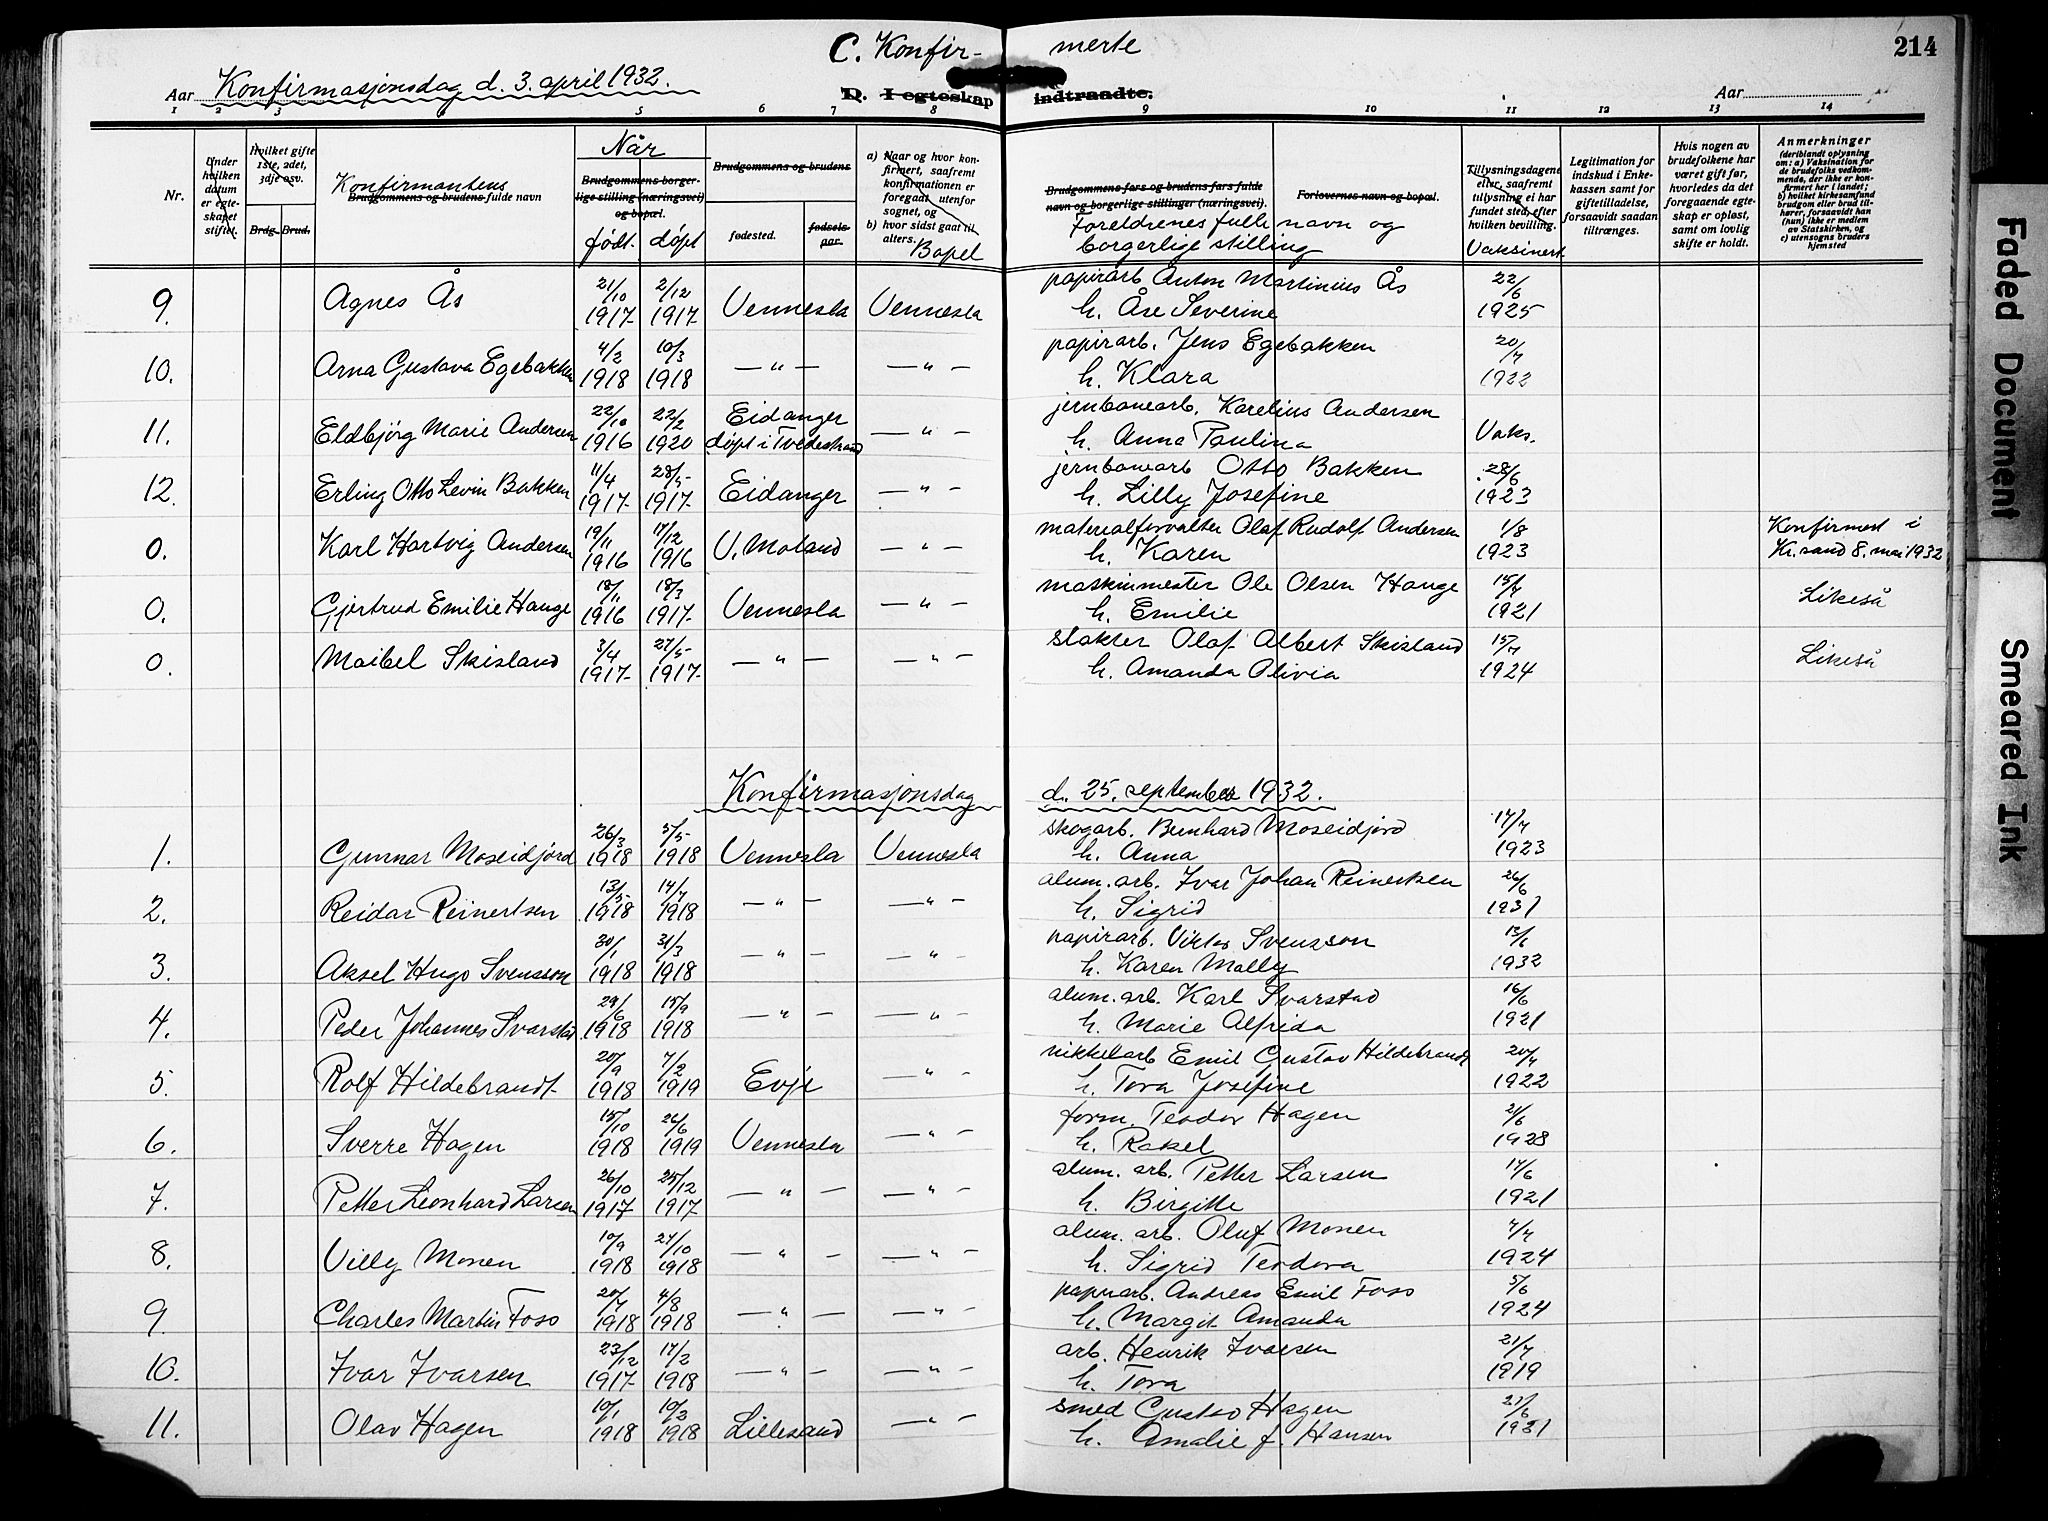 C. Konfir- merte
214
Aar Konfirmasjonsdag d. 3. april 1932.
D. I egteskap indtraadte.
Aar
1 2 3 4 5 6 7 8 9 10 11 12 13 14
Nr.
Under hvilken datum er egteskapet stiftet.
Hvilket gifte 1ste, 2det, 3dje osv.
Brdg. Brud.
Konfirmantens
Brudgommens og brudens fulde navn
Når
Brudgommens borgerlige stilling (næringsvei) og bopæl.
født. døpt
Brudgommens og brudens
fødested. fødselsaar.
a) Naar og hvor konfirmert, saafremt konfirmationen er foregaat utenfor sognet, og
b) hvor sidst gaat til alters.
Bopel
Brudgommens fars og brudens fars fulde navn og borgerlige stillinger (næringsvei).
Foreldrenes fulle navn og
borgerlige stilling
Forlovernes navn og bopæl.
Tillysningsdagene eller, saafremt tillysning ei har fundet sted, efter hvilken bevilling.
Vaksinert
Legitimation for indskud i Enkekassen samt for giftetilladelse, forsaavidt saadan tiltrænges.
Hvis nogen av brudefolkene har været gift før, hvorledes da det foregaaende egteskap er opløst, samt om lovlig skifte er holdt.
Anmerkninger
(deriblandt oplysning om: a) Vaksination for de brudefolks vedkommende, der ikke er konfirmert her i landet; b) hvilket kirkesamfund brudgom eller brud tilhører, forsaavidt han (hun) ikke er medlem av Statskirken, og c) utensogns bruders hjemsted
9. Agnes Ås 21/10 1917 2/12 1917 Vennesla Vennesla papirarb Anton Martinius Ås h. Åse Severine 22/6 1925
10. Arna Gustava Egebakken 4/2 1918 10/3 1918 — " — — " — papirarb. Jens Egebakken h. Klara 20/7 1922
11. Eldbjörg Marie Andersen 22/10 1916 22/2 1920 Eidanger døpt i Tvedestrand — " — jernbanearb. Karelius Andersen h. Anna Paulina Vaks.
12. Erling Otto Levin Bakken 11/4 1917 28/5 1917 Eidanger — " — jernbanearb Otto Bakken h. Lilly Josefine 28/6 1923
0. Karl Hartvig Andersen 19/11 1916 17/12 1916 V. Moland — " — materialforvalter Olaf Rudolf Andersen h. Karen 1/8 1923 Konfirmert i Kr.sand 8. mai 1932
0. Gjertrud Emilie Hauge 18/11 1916 18/3 1917 Vennesla — " — maskinmester Ole Olsen Hauge h. Emilie 1921 Likeså
0. Maibel Skisland 3/4 1917 27/5 1917 — " — — " — slakter Olaf Albert Skisland h. Amanda Olivia 15/7 1924 Likeså
Konfirmasjonsdag d. 25. september 1932.
1. Gunnar Moseidjord 26/3 1918 5/5 1918 Vennesla Vennesla skogarb. Bernhard Moseidjord h. Anna 17/7 1923
2. Reidar Reinertsen 13/5 1918 14/7 1918 — " — — " — alum. arb. Ivar Johan Reinertsen h. Sigrid 26/6 1931
3. Aksel Hugo Svensson 30/1 1918 31/3 1918 — " — — " — papirarb. Viktor Svensson h. Karen Mally 13/6 1932
4. Peder Johannes Svarstad 29/6 1918 15/9 1918 — " — — " — alum. arb. Karl Svarstad h. Marie Alfrida 16/6 1921
5. Rolf Hildebrandt 20/9 1918 7/2 1919 Evje — " — nikkelarb Emil Gustav Hildebrandt h. Tora Josefine 20/7 1922
6. Sverre Hagen 15/10 1918 26/6 1919 Vennesla — " — form. Teodor Hagen h. Rakel 21/6 1928
7. Petter Leonhard Larsen 26/10 1917 25/12 1917 — " — — " — alum. arb. Petter Larsen h. Birgitte 17/6 1921
8. Villy Monen 10/9 1918 27/10 1918 — " — — " — alum. arb. Oluf Monen h. Sigrid Teodora 7/7 1924
9. Charles Martin Foso 20/7 1918 4/8 1918 — " — — " — papirarb. Andreas Emil Foso h. Margit Amanda 5/6 1924
10. Ivar Ivarsen 23/12 1917 17/2 1918 — " — — " — arb. Henrik Ivarsen h. Tora 21/7 1919
11. Olav Hagen 10/1 1918 10/2 1918 Lillesand — " — smed Gustav Hagen h. Amalie f. Hansen 1931
Faded Document
Smeared Ink